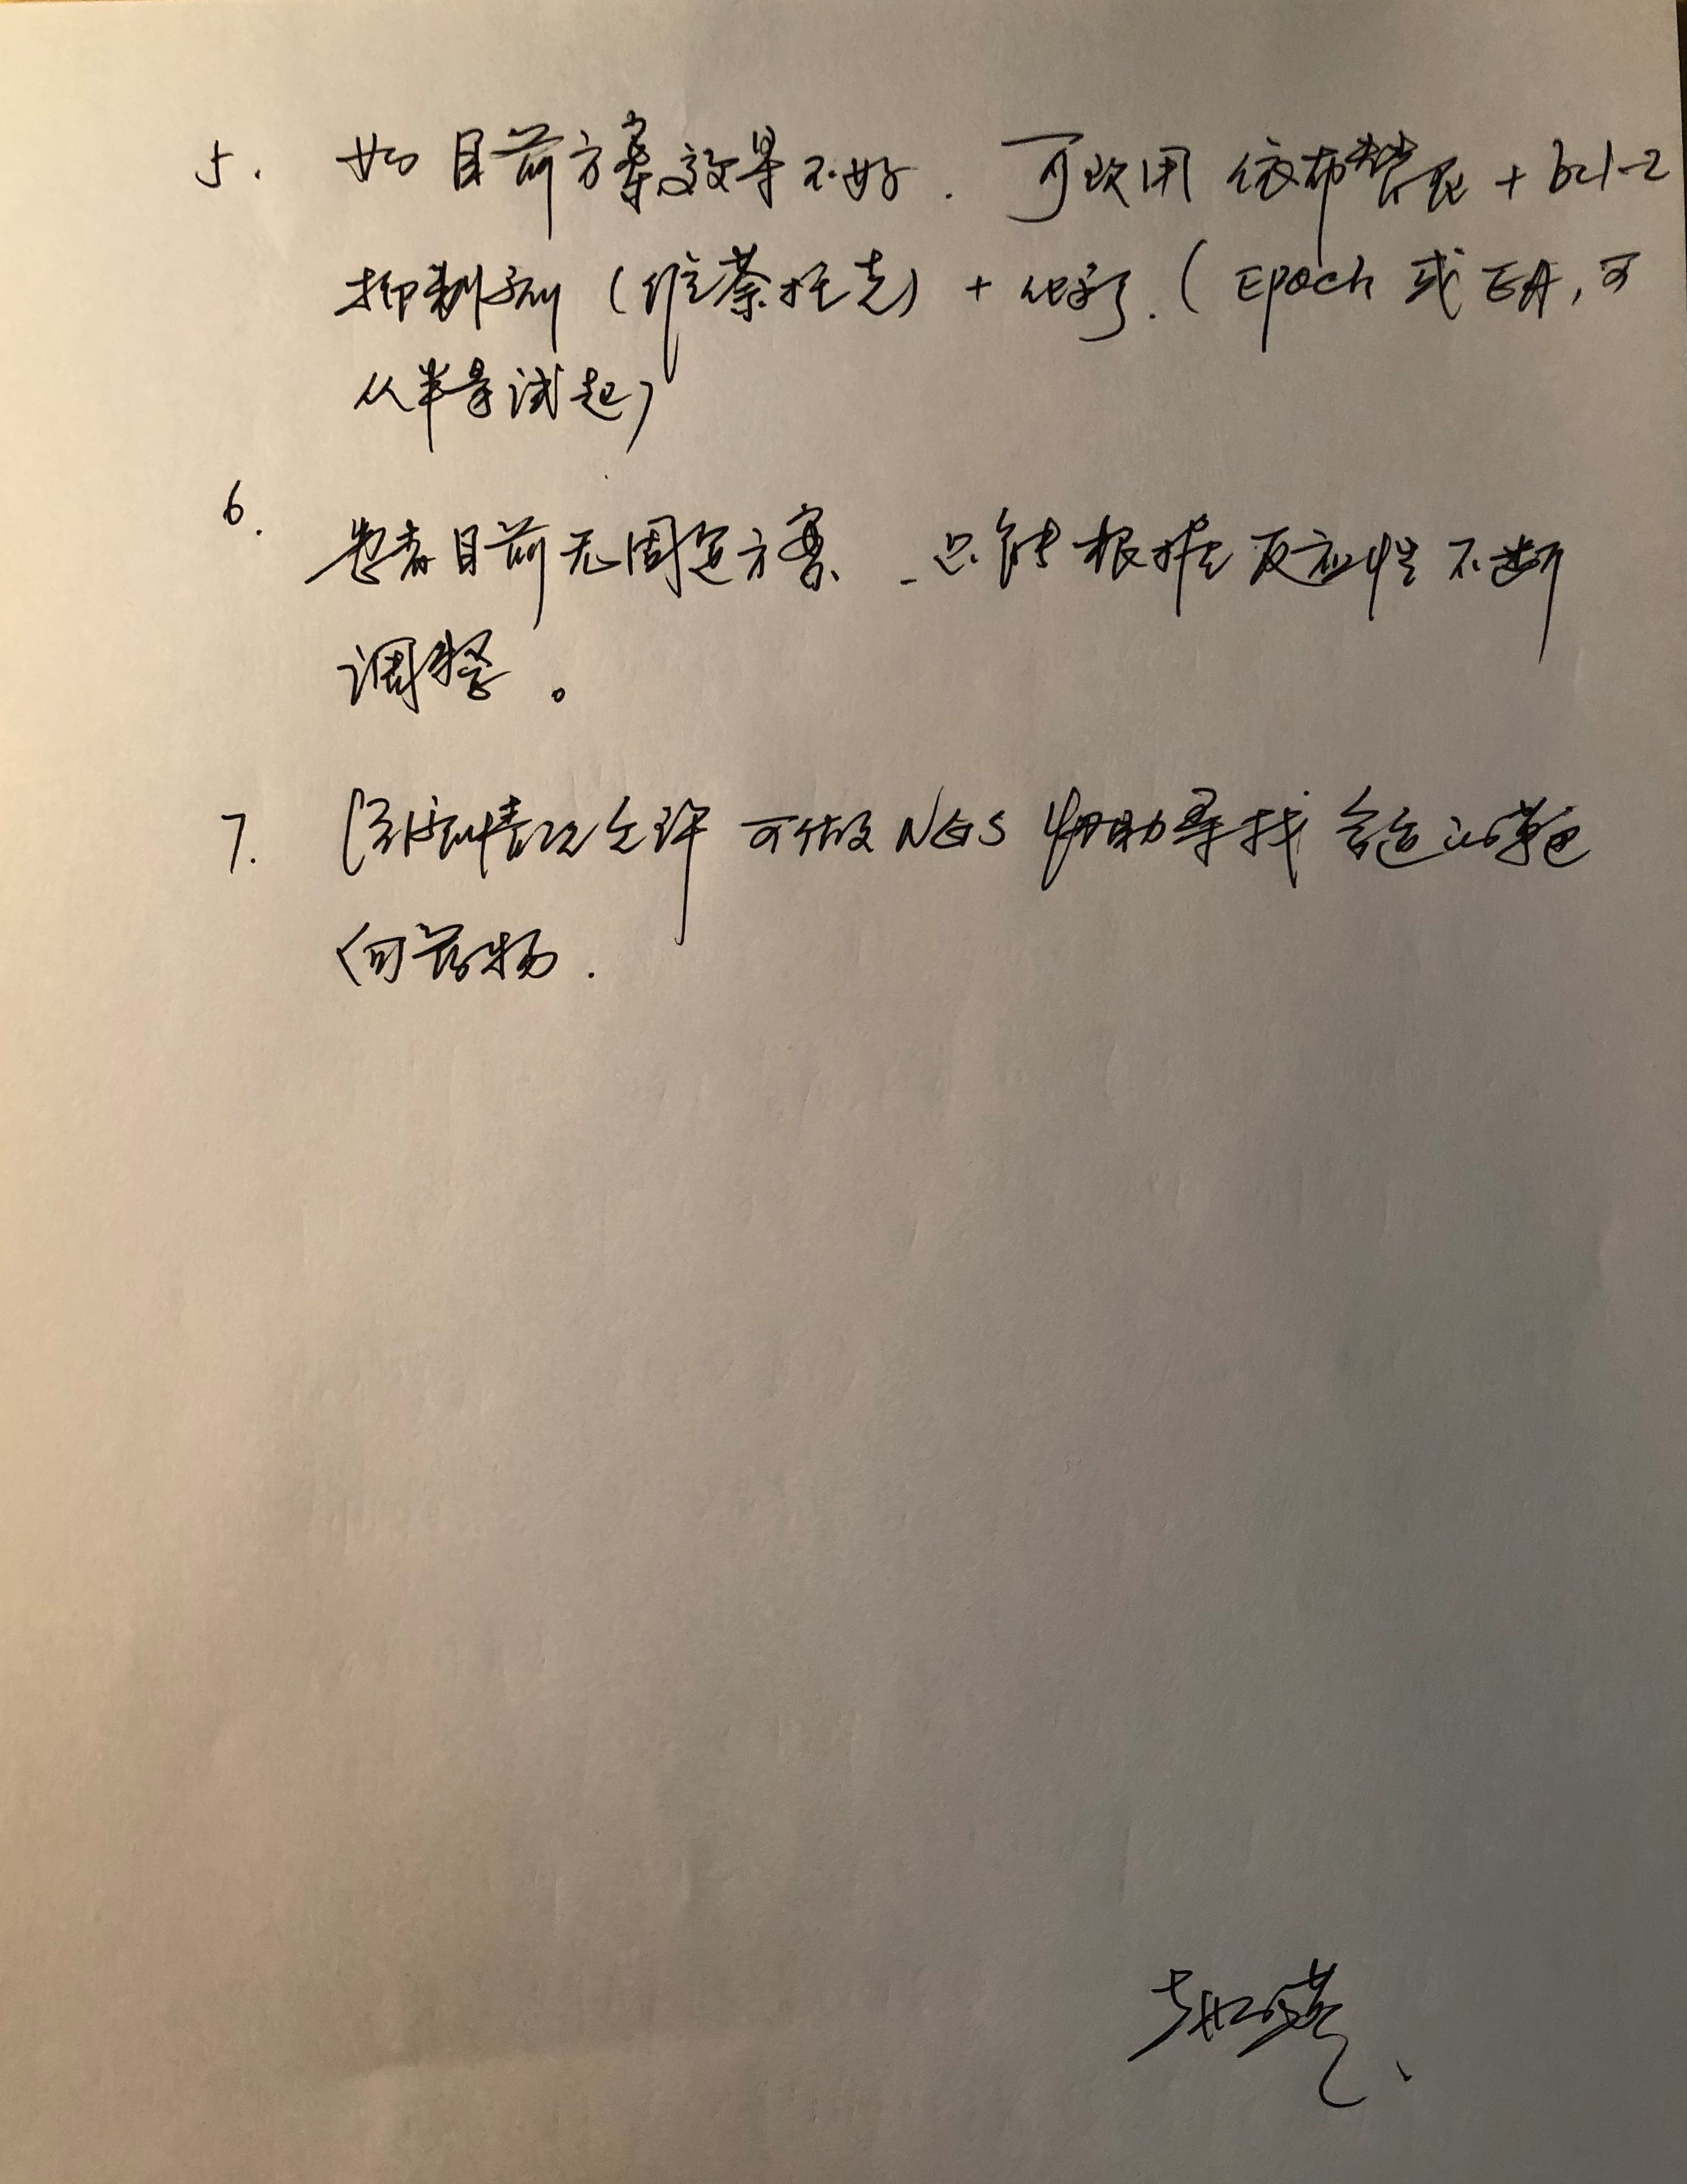 5. 如目前方案效果不好. 可改用 依布替尼 + bcl-2
抑制剂 (维萘托克) + 化疗. ( Epoch 或 EA, 可
从半量试起)
6. 患者目前无固定方案、只能根据反应性不断
调整。
7. 经济情况允许 可做 NGS 帮助寻找合适的靶
向药物.